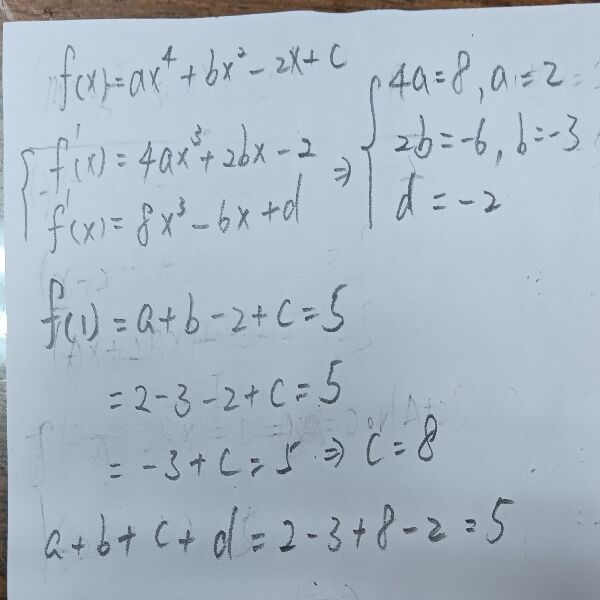 f(x)=ax⁴+bx²-2x+c
f'(x)=4ax³+2bx-2
f'(x)=8x³-6x+d
⇒ 4a=8, a=2
2b=-6, b=-3
d=-2
f(1)=a+b-2+c=5
=2-3-2+c=5
=-3+c=5⇒c=8
a+b+c+d=2-3+8-2=5